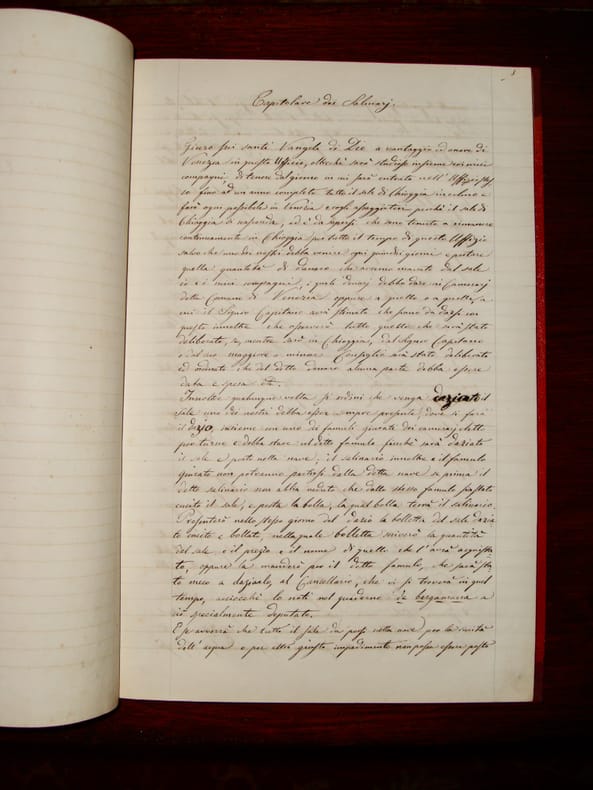 Capitolare dei Salinarj.
Giuro sui santi Vangeli di Dio a vantaggio ed onore di
Venezia in questo Ufficio, ottechè sarà studiose insieme coi miei
compagni di tener dal giorno in cui sarò entrato nell' Uffizio stes
so fino ad un anno completo tutto il sale di Chioggia in colmo e
farò ogni possibile in Venezia e cogli perchè il sale di
Chioggia si nasconda, ed i da sopressi che sono tenuto a rimanere
continuamente in Chioggia per tutto il tempo di questo Uffizio
salvo che uno dei nostri debba venire ogni quindici giorni e portare
quella quantità di danaro che avremo ricavato dal sale
io e i miei compagni, i quali denaj debbo dare ai Camerarj
della Comune di Venezia oppure a quello o a quelli, a
cui il Signor Capitano avrà stimato che siano da darsi con
questo inoltre che osserverò tutto quello che sarà stato
deliberato, se, mentre sarò in Chioggia, dal Signor Capitano
e dal suo maggiore o minore Consiglio avrà stato deliberato
ed ordinato che del detto danaro alcuna parte debba essere
data e spesa
Inoltre qualunque volta si ordini che venga daziato il
sale uno dei nostri debba esser sempre presente, dove si farà
il dazio, insieme con uno dei famuli giurati dei camerarj detti
per turno e debba stare il detto famulo finchè sarà daziato
il sale e posto nella nave; il salinario inoltre e il famulo
giurato non potranno partirsi dalla detta nave se prima il
detto salinario non abbia veduto che dallo stesso famulo sia stato
il sale, e posta la bolla, la qual bolla terrà il salinario.
Presenterò nello stesso giorno del dazio la bolletta del sale dazia
to e bollato, nella quale bolletta metterò la quantità
del sale e il prezzo e il nome di quello che l'avrà acquista
to, oppure la manderò per il detto famulo, che sarà sta
to meco a daziarlo, al Cancellario, che vi si troverà in quel
tempo, acciocchè lo noti nel quaderno de bergamena a
ciò specialmente deputato.
E se avverrà che tutto il sale da porsi nella nave, per la
dell' acqua o per altro giusto impedimento non possa essere posto